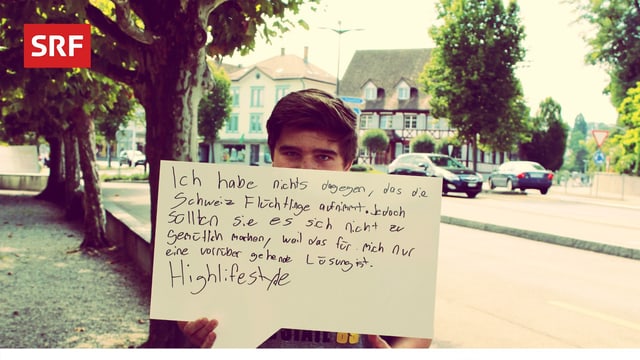 SRF
Ich habe nichts dagegen, das die
Schweiz Flüchtlinge aufnimmt. Jedoch
sollten sie es sich nicht zu
gemütlich machen, weil das für mich nur
eine vorrüber gehende Lösung ist.
Highlifestyle